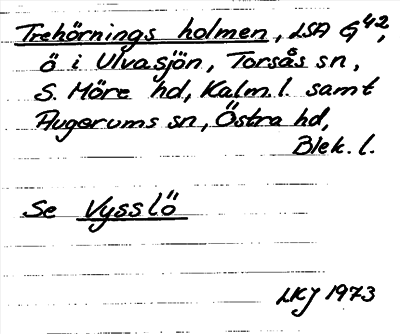 Trehörnings holmen, LSA G⁴²,
ö i Ulvasjön, Torsås sn,
S. Möre hd, Kalm.l. samt
Augerums sn, Östra hd,
Blek. l.
Se Vysslö
LKJ 1973